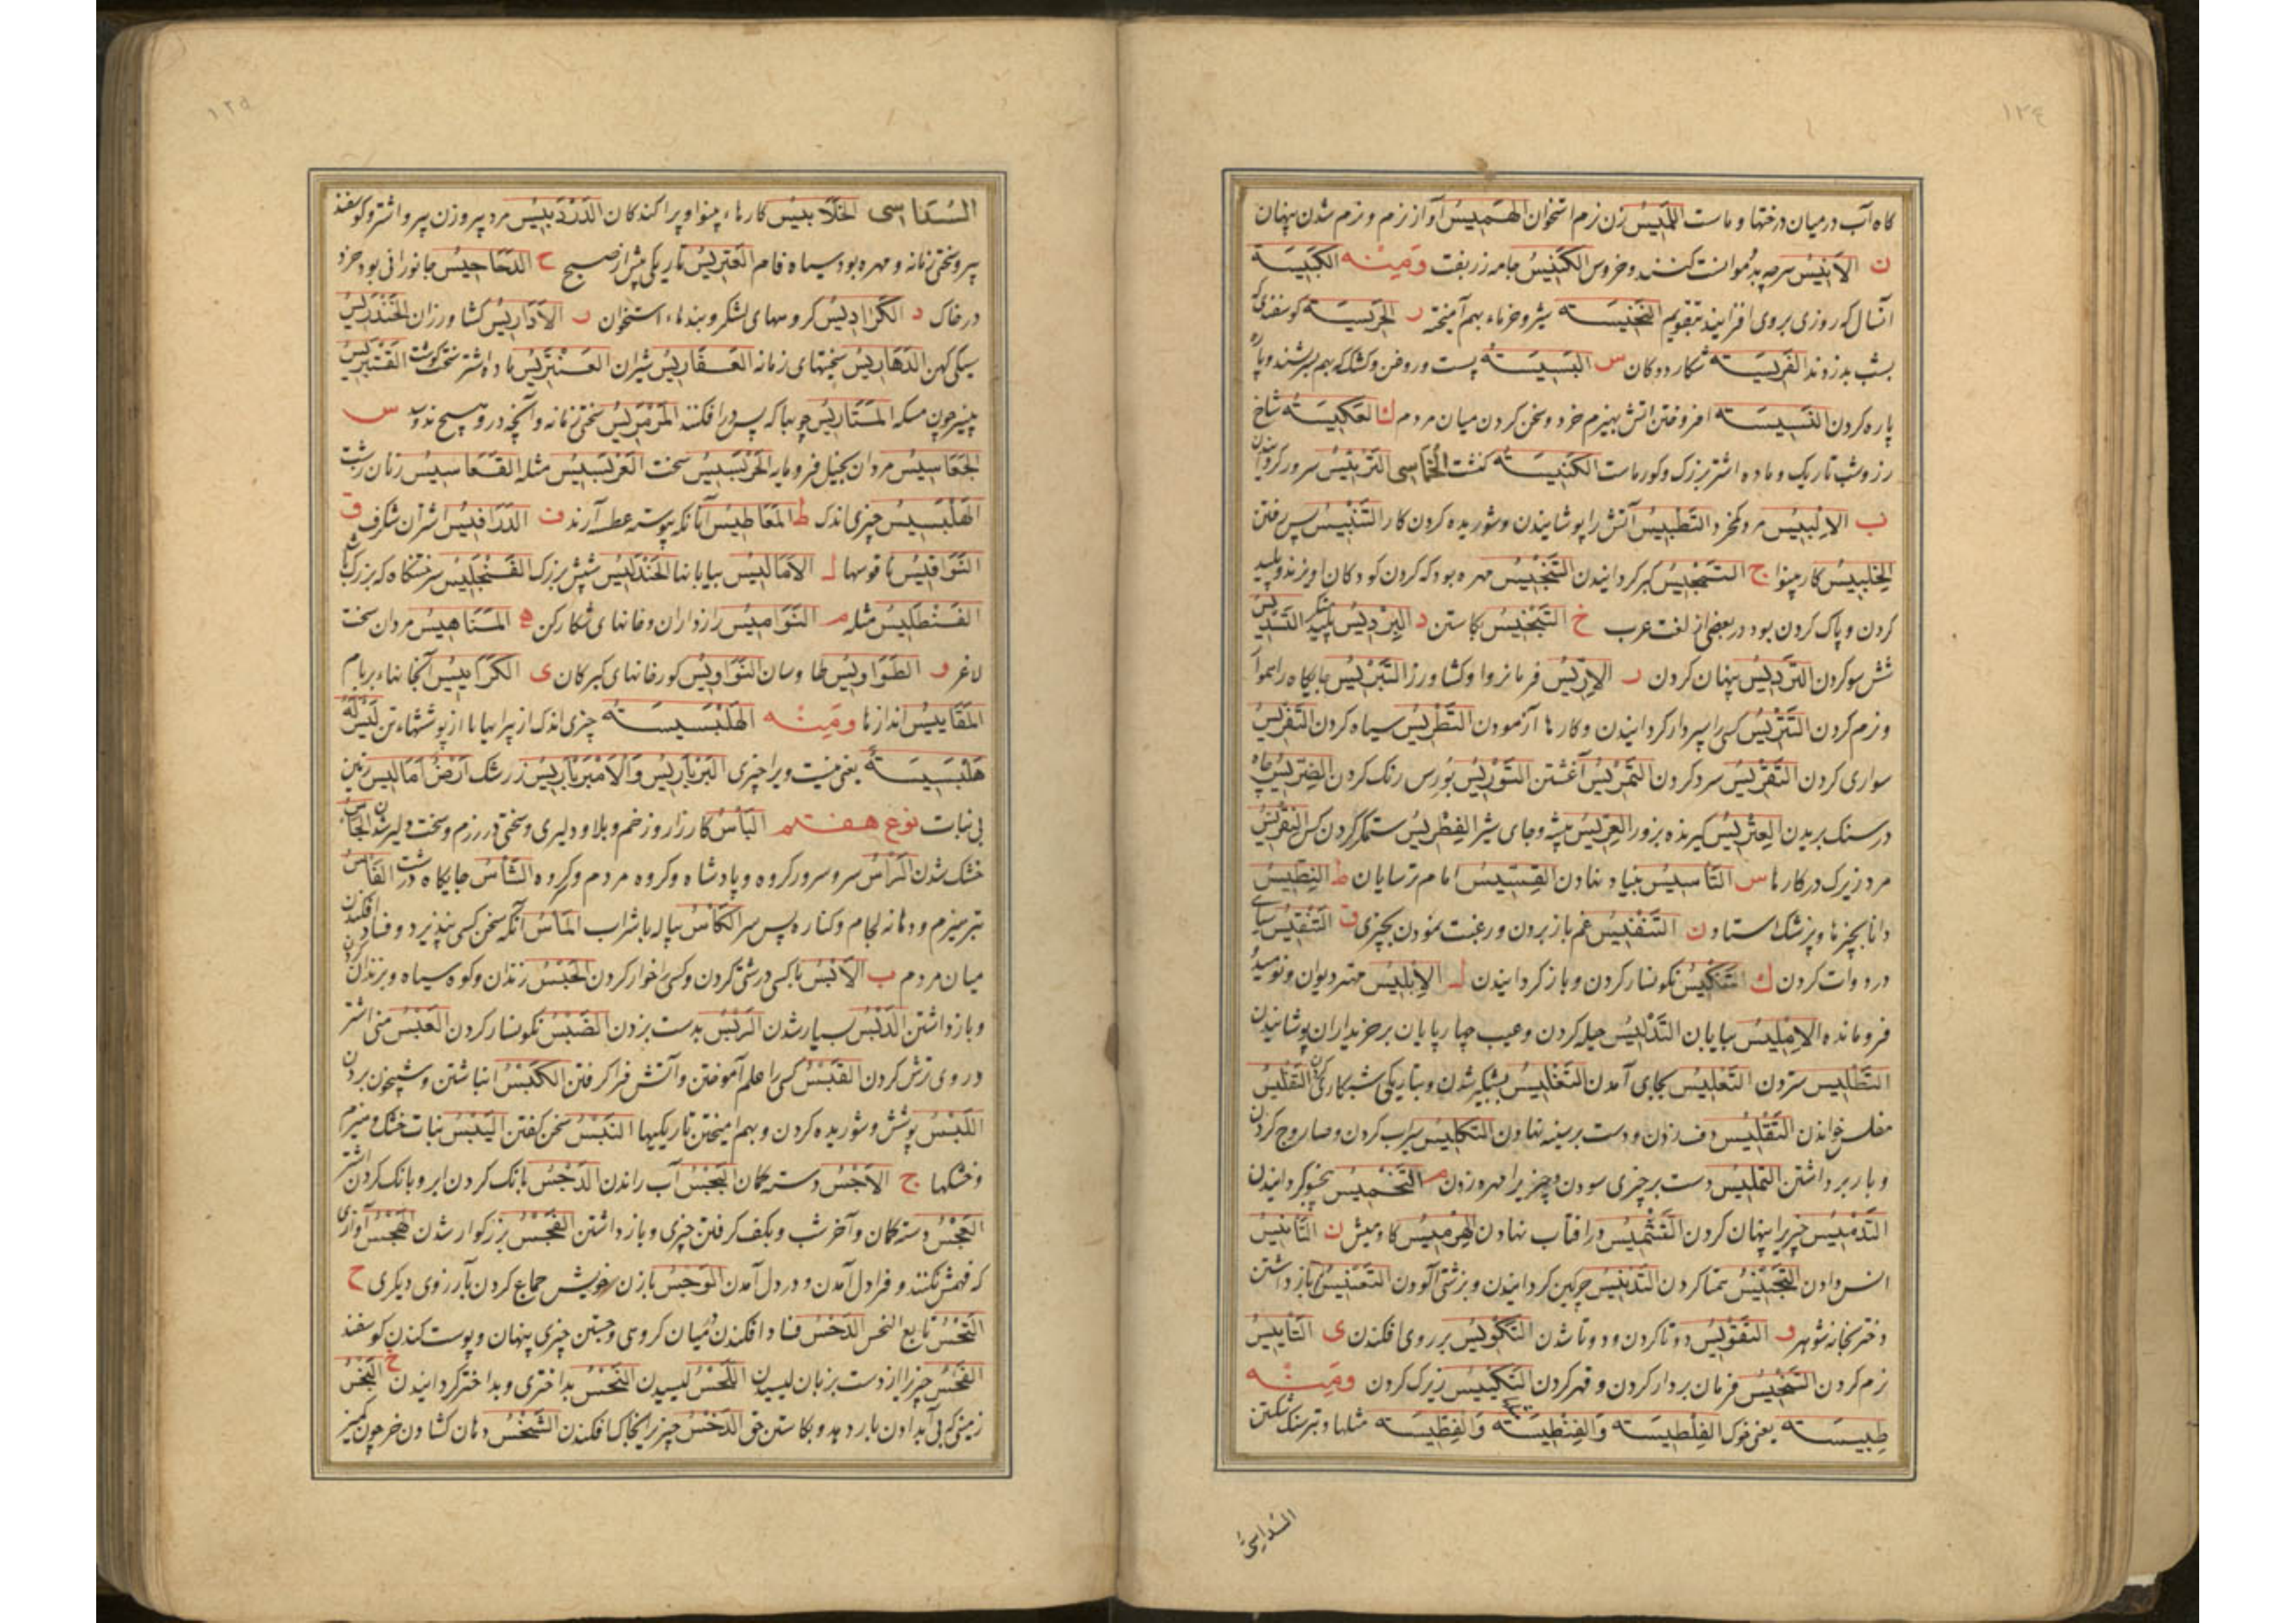 ١٢٤
کاه آب در میان درختها و ماست اللَمِیسُ زن نرم استخوان الهَمِیسُ آواز نرم و نرم شدن پنهان
ن الاَنِیسُ هرچه بدو موانست کنند و خروس الکَنِیسُ جامه زربفت وَمِنْه الکَبِیسَة
آنسال که روزی بروی افزایند بتقویم النَخِیسَة شیر و خرماء بهم آمیخته ر الحَرِیسَة کوسفندی که
بشب بدزدند الفَرِیسَة شکار ددکان س البَسِیسَة پست و روغن و کشک که بهم بسرشند و پاره
پاره کردن النَسِیسَة افروختن اتش بهیزم خرد و سخن کردن میان مردم ك العَکِیسَة شاخ
رز و شب تاریک و ماده اشتر بزرک و کورماست الکَنِیسَة کنشت الخُمَاسی التَرْئِیسُ سرور کردانیدن
ب الاِلْبِیسُ مرد کم خرد التَطْبِیسُ آتش را پوشانیدن و شوریده کردن کار التَنْبِیسُ پس رفتن
الخِلْبِیسُ کار بینوا ج التَمْجِیسُ کبر کردانیدن التَنْجِیسُ مهره بود که کردن کودکان اویزند و پلید
کردن و پاک کردن بود در بعضی از لغت عرب خ التَبْخِیسُ کاستن د البِرْدِیسُ پلید متکبر التَسْدِیسُ
شش سو کردن التَرْدِیسُ پنهان کردن ر الاِرِّیسُ فرمانروا و کشاورز التَبْرِیسُ جایکاه را هموار
و نرم کردن التَتْرِیسُ کسی را سپردار کردانیدن و کارها آزمودن التَطْرِیسُ سیاه کردن التَفْرِیسُ
سواری کردن التَقْرِیسُ سرد کردن التَمْرِیسُ آغشتن التَوْرِیسُ بورس رنک کردن الضِرِّیسُ چاه
در سنک بریدن العِتْرِیسُ کیرنده بزور العِرِّیسُ بیشه و جای شیر الفِطْرِیسُ ستمکر کردن کش النِقْرِیسُ
مرد زیرک در کارها س التَاسِیسُ بنیاد نهادن القِسِّیسُ امام ترسایان ط النِطِّیسُ
دانا بچیزها و پزشک استاد ن التَنْفِیسُ غم باز بردن و رغبت نمودن بچیزی ق التَنْقِیسُ سیاهی
در دوات کردن ك التَنْکِیسُ نکونسار کردن و باز کردانیدن ل الاِبْلِیسُ مهتر دیوان و نومید
فرومانده الاِمْلِیسُ بیابان التَدْلِیسُ حیله کردن و عیب چهارپایان بر خریداران پوشانیدن
التَطْلِیسُ ستردن التَعْلِیسُ بجای آمدن التَغْلِیسُ بشبکیر شدن و بتاریکی شب کاری کردن التَفْلِیسُ
مفلس خواندن التَقْلِیسُ دف زدن و دست بر سینه نهادن التَکْلِیسُ سیراب کردن و صاروج کردن
و بار برداشتن التَمْلِیسُ دست بر چیزی سودن و چیز را مهره زدن م التَخْمِیسُ پنج سو کردانیدن
التَدْمِیسُ چیز را پنهان کردن التَشْمِیسُ در آفتاب نهادن الهِرْمِیسُ کاومیش ن التَانِیسُ
انس دادن التَجْنِیسُ همتا کردن التَدْنِیسُ چرکین کردانیدن و بزشتی آلودن التَعْنِیسُ بازداشتن
دختر بخانه شوهر و التَقْوِیسُ دوتا کردن و دوتا شدن التَکْوِیسُ بر روی افکندن ی التَایِیسُ
نرم کردن التَخْیِیسُ فرمان بردار کردن و قهر کردن التَکْیِیسُ زیرک کردن وَمِنْه
طِبِیسَة یعنی خوک الفِلْطِیسَة وَالفِنْطِیسَة وَالفِطِّیسَة مثلها و تبر سنک شکستن
السُدَاسِیُّ
١٢٥
السُدَاسی الخَلَابِیسُ کارهاء بینوا و پراکندکان الدَرْدَبِیسُ مرد پیر و زن پیر و اشتر و کوسفند
پیر و سختی زمانه و مهره بود سیاه فام العَتَرِیسُ تاریکی پیش از صبح ح الدَحَاحِیسُ جانورانی بود خرد
در خاک د الکَرَادِیسُ کروههای لشکر و بندهاء استخوان ر الاَدَارِیسُ کشاورزان الخَنْدَرِیسُ
سیکی کهن الدَهَارِیسُ سختیهای زمانه العَفَارِیسُ شیران العَنْتَرِیسُ ماده اشتر سخت کوشت القَنْتَرِیسُ
پنیر چون مسکه المَتَارِیسُ چوبها که پس در افکنند المَرْمَرِیسُ سختی زمانه و آنچه در و هیچ نروید س
الجَعَاسِیسُ مردان بخیل فرومایه الحَرْبَسِیسُ سخت العَرْبَسِیسُ مثله القَعَاسِیسُ زنان زشت
الهَلْبَسِیسُ چیزی اندک ط المَعَاطِیسُ آنانکه پیوسته عطسه آرند ف الدَرَافِیسُ اشتران شکرف ق
النَوَاقِیسُ ناقوسها ل الاَمَالِیسُ بیابانها الحَنْدَلِیسُ شپش بزرک الفَنْجَلِیسُ سر ختنکاه که بزرک باشد
الفَنْطَلِیسُ مثله م النَوَامِیسُ رازداران و خانهای شکار کن ه المَنَاهِیسُ مردان سخت
لاغر و الطَوَاوِیسُ طاوسان النَوَاوِیسُ کورخانهای کبرکان ی الکَرَایِیسُ آبخانهاء بر بام
المَقَایِیسُ اندازها وَمِنْه الهَلْبَسِیسَةُ چیزی اندک از پیرایها یا از پوششهاء تن لَیْسَ لَهُ
هَلْبَسِیسَةٌ یعنی نیست ویرا چیزی البَرْبَارِیسُ وَالاَمْبَرْبَارِیسُ زرشک اَرْضٌ اَمَالِیسُ زمین
بی نبات نوع هفتم البَاْسُ کارزار و زخم و بلا و دلیری و سختی در رزم و سخت دلیر شدن الجَاسُ
خشک شدن الرَاْسُ سر و سرور کروه و پادشاه و کروه مردم و کروه الشَاْسُ جایکاه درشت الفَاْسُ
تبر هیزم و دهانه لجام و کناره پس سر الکَاْسُ پیاله با شراب المَاْسُ آنکه سخن کسی نپذیرد و فساد افکندن
میان مردم ب الاَبْسُ با کسی درشتی کردن و کسی را خوار کردن الحَبْسُ زندان و کوه سیاه و بزندان کردن
و بازداشتن الدَبْسُ بسیار شدن الرَبْسُ بدست بزدن الضَبْسُ نکونسار کردن العَبْسُ منی اشتر
در روی ترش کردن القَبْسُ کسی را علم آموختن و آتش فرا کرفتن الکَبْسُ انباشتن و شبیخون بردن
اللَبْسُ پوشش و شوریده کردن و بهم امیختن تاریکیها النَبْسُ سخن کفتن الیَبْسُ نبات خشک و هیزم
و خشکیها ج الاَجْسُ دسته کمان البَجْسُ آب راندن الدَجْسُ بانک کردن ابر و بانک کردن اشتر
العَجْسُ دسته کمان و آخر شب و بکف کرفتن چیزی و بازداشتن الفَجْسُ بزرکوار شدن الهَجْسُ آوازی
که فهمش نکنند و فرا دل آمدن و در دل آمدن الوَجْسُ با زن خویش جماع کردن بآرزوی دیکری ح
النَحْسُ تابع النحس الدَحْسُ فساد افکندن میان کروهی و جستن چیزی پنهان و پوست کندن کوسفند
الفَحْسُ چیز را از دست بزبان لیسیدن اللَحْسُ لیسیدن النَحْسُ بداختری و بداختر کردانیدن خ البَخْسُ
زمینی که بی آب دادن بار دهد و بکاستن حق الدَخْسُ چیز را بخاک افکندن الشَخْسُ دهان کشادن خر چون کمیز